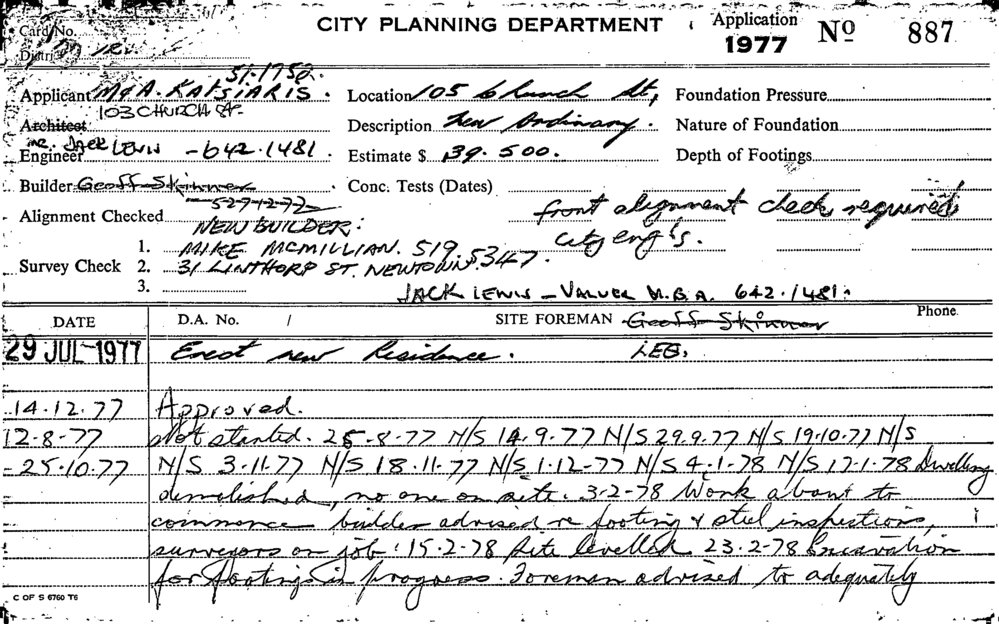 Card No.
CITY PLANNING DEPARTMENT
Application
1977 Nº 887
Distri
51.1752.
Applicant M & A. KATSIARIS. Location 105 Church St, Foundation Pressure
103 CHURCH ST.
Architect Description New Ordinary. Nature of Foundation
Engineer JACK LEWIS - 642.1481. Estimate $ 39.500. Depth of Footings
Builder Geoff Skinner. Conc. Tests (Dates)
front alignment check required
Alignment Checked
NEW BUILDER:
city eng's.
1. MIKE MCMILLIAN. 519.5347.
Survey Check 2. 31 LINTHORP ST. NEWTOWN.
3.
JACK LEWIS - VALUER M.B.A. 642.1481.
DATE D.A. No. / SITE FOREMAN Geoff Skinner Phone
29 JUL 1977 Erect new Residence. LES.
14.12.77 Approved.
12-8-77 Not started. 25-8-77 N/S 14.9.77 N/S 29.9.77 N/S 19.10.77 N/S
25.10.77 N/S 3.11.77 N/S 18.11.77 N/S 1.12-77 N/S 4.1.78 N/S 17.1.78 Dwelling
demolished, no one on site. 3-2-78 Work about to
commence builder advised re footing & steel inspections,
surveyors on job. 15.2-78 Site levelled. 23.2-78 Excavation
for footings in progress. Foreman advised to adequately
C OF S 6760 T6